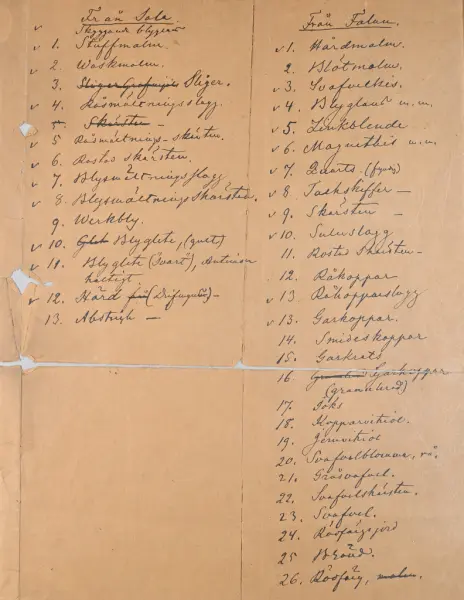 Från Sala.
1. Stuffmalm.
2. Waskmalm.
3. Sliger.
4. Råsmältningsslagg
5. Skärsten
5 Råsmältnings-skärsten.
6. Rostad skärsten.
7. Blysmältningsslagg
8. Blysmältningsskärsten.
9. Werkbly.
10. Blyglete, (gult)
11. Blyglete (Svart), Antimon
haltigt.
12. Härd
13. Abstrich —
Från Falun.
1. Hårdmalm.
2. Blötmalm.
3. Svafvelkis.
4. Blyglans m.m.
5. Zinkblende.
6. Magnetkis m.m.
7. Quarts.
8. Talkskiffer —
9. Skärsten —
10. Suluslagg
11. Rostad Skärsten —
12. Råkoppar
13. Råkopparslagg
13. Garkoppar.
14. Smideskoppar
15. Garkrats
16. Garkoppar
(granulerad)
17.
18. Kopparvitriol.
19. Jernvitriol
20. Svafvelblomma, rå.
21. Gråsvafvel.
22. Svafvelskärsten.
23. Svafvel.
24. Rödfärgsjord
25
26. Rödfärg, malen.